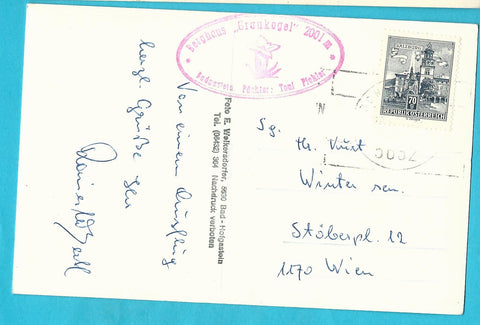 Berghaus „Graukogel" 2001 m
Badgastein Pächter: Toni Pichler
SALZBURG
70
REPUBLIK ÖSTERREICH
Von einem Ausflug
herzl. Grüße
Foto E. Welkersdorfer, 5630 Bad - Hofgastein
Tel. (06432) 304 Nachdruck verboten
Sg. Hr. Kurt
Winter sen.
Stöberpl. 12
1170 Wien